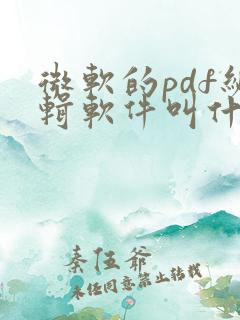 微軟的pdf編
輯軟件叫什
秦伍爺
未任同意禁止转载